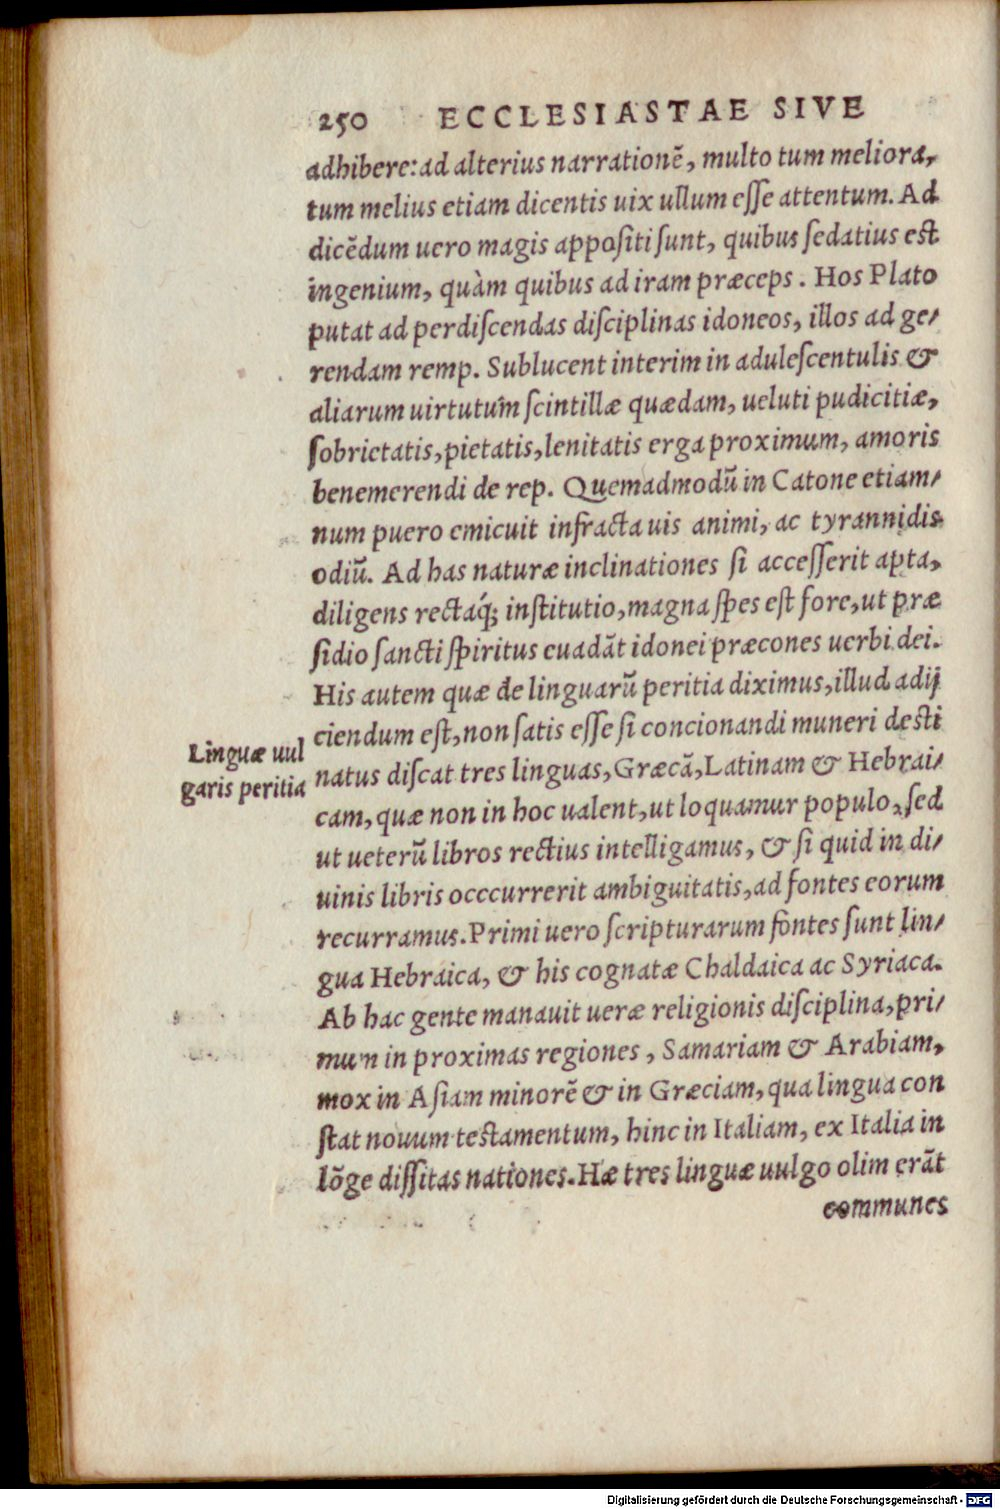 250 ECCLESIASTAE SIVE
adhibere: ad alterius narrationẽ, multo tum meliora,
tum melius etiam dicentis uix ullum eſſe attentum. Ad
dicẽdum uero magis appoſiti ſunt, quibus ſedatius eſt
ingenium, quàm quibus ad iram præceps. Hos Plato
putat ad perdiſcendas diſciplinas idoneos, illos ad ge/
rendam remp. Sublucent interim in aduleſcentulis &
aliarum uirtutum ſcintillæ quædam, ueluti pudicitiæ,
ſobrietatis, pietatis, lenitatis erga proximum, amoris
benemerendi de rep. Quemadmodũ in Catone etiam/
num puero emicuit infracta uis animi, ac tyrannidis
odiũ. Ad has naturæ inclinationes ſi acceſſerit apta,
diligens rectaq́; inſtitutio, magna ſpes eſt fore, ut præ
ſidio ſancti ſpiritus euadãt idonei præcones uerbi dei.
His autem quæ de linguarũ peritia diximus, illud adij
ciendum eſt, non ſatis eſſe ſi concionandi muneri deſti
Linguæ uul
garis peritia
natus diſcat tres linguas, Græcã, Latinam & Hebrai/
cam, quæ non in hoc ualent, ut loquamur populo, ſed
ut ueterũ libros rectius intelligamus, & ſi quid in di/
uinis libris occcurrerit ambiguitatis, ad fontes eorum
recurramus. Primi uero ſcripturarum fontes ſunt lin/
gua Hebraica, & his cognatæ Chaldaica ac Syriaca.
Ab hac gente manauit ueræ religionis diſciplina, pri/
mum in proximas regiones, Samariam & Arabiam,
mox in Aſiam minorẽ & in Græciam, qua lingua con
ſtat nouum teſtamentum, hinc in Italiam, ex Italia in
lõge diſſitas nationes. Hæ tres linguæ uulgo olim erãt
communes
Digitalisierung gefördert durch die Deutsche Forschungsgemeinschaft - DFG